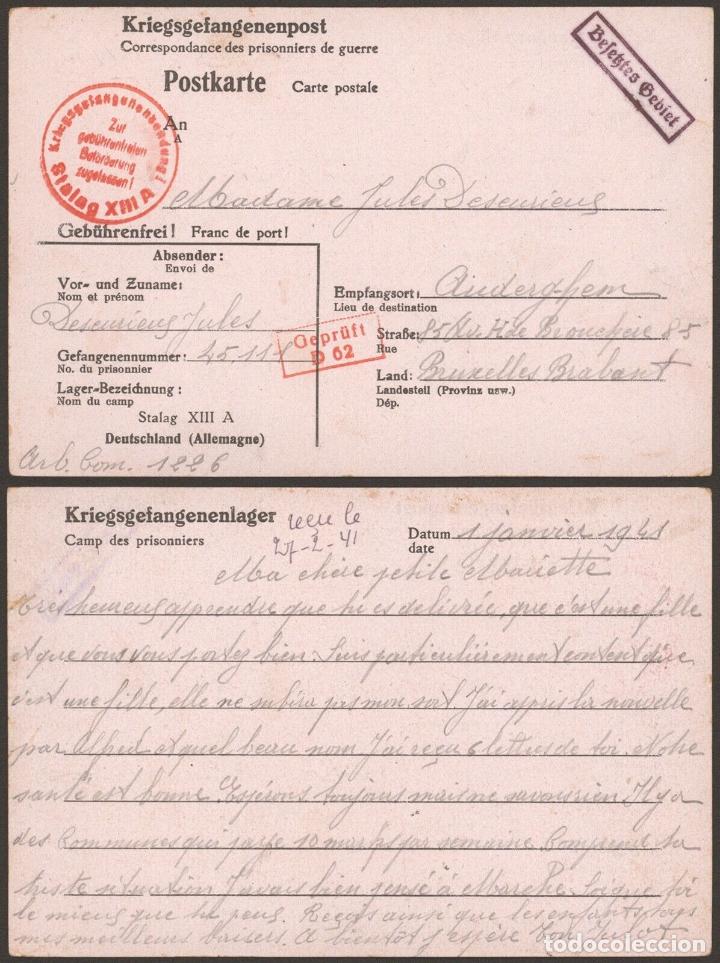 Kriegsgefangenenpost
Correspondance des prisonniers de guerre
Postkarte Carte postale
Besetztes Gebiet
Kriegsgefangenensendung!
Zur
gebührenfreien
Beförderung
zugelassen!
Stalag XIII A
An
A
Madame Jules
Gebührenfrei! Franc de port!
Absender:
Envoi de
Vor- und Zuname:
Nom et prénom
Jules
Gefangenennummer:
No. du prisonnier
Lager-Bezeichnung:
Nom du camp
Stalag XIII A
Deutschland (Allemagne)
Arb. Com. 1226
Geprüft
D 62
Empfangsort: Auderghem
Lieu de destination
Straße: 85 Av. H de Brouckère 85
Rue
Land: Bruxelles Brabant
Landesteil (Provinz usw.)
Dép.
Kriegsgefangenenlager
Camp des prisonniers
reçu le
27-2-41
Datum 1 janvier 1941
date
Ma chère petite Mariette
Très heureux apprendre que tu es délivrée, que c'est une fille
et que vous vous portez bien. Suis particulièrement content que
c'est une fille, elle ne subira pas mon sort. J'ai appris la nouvelle
par Alfred et quel beau nom J'ai reçu 6 lettres de toi. Notre
santé est bonne. Espérons toujours mais ne savons rien Il y a
des Communes qui 10 par semaine Comprend ta
triste situation J'avais bien pensé à Soigne toi
le mieux que tu peux. Reçois ainsi que les enfants
mes meilleurs baisers. A bientôt j'espère Ton
todocoleccion